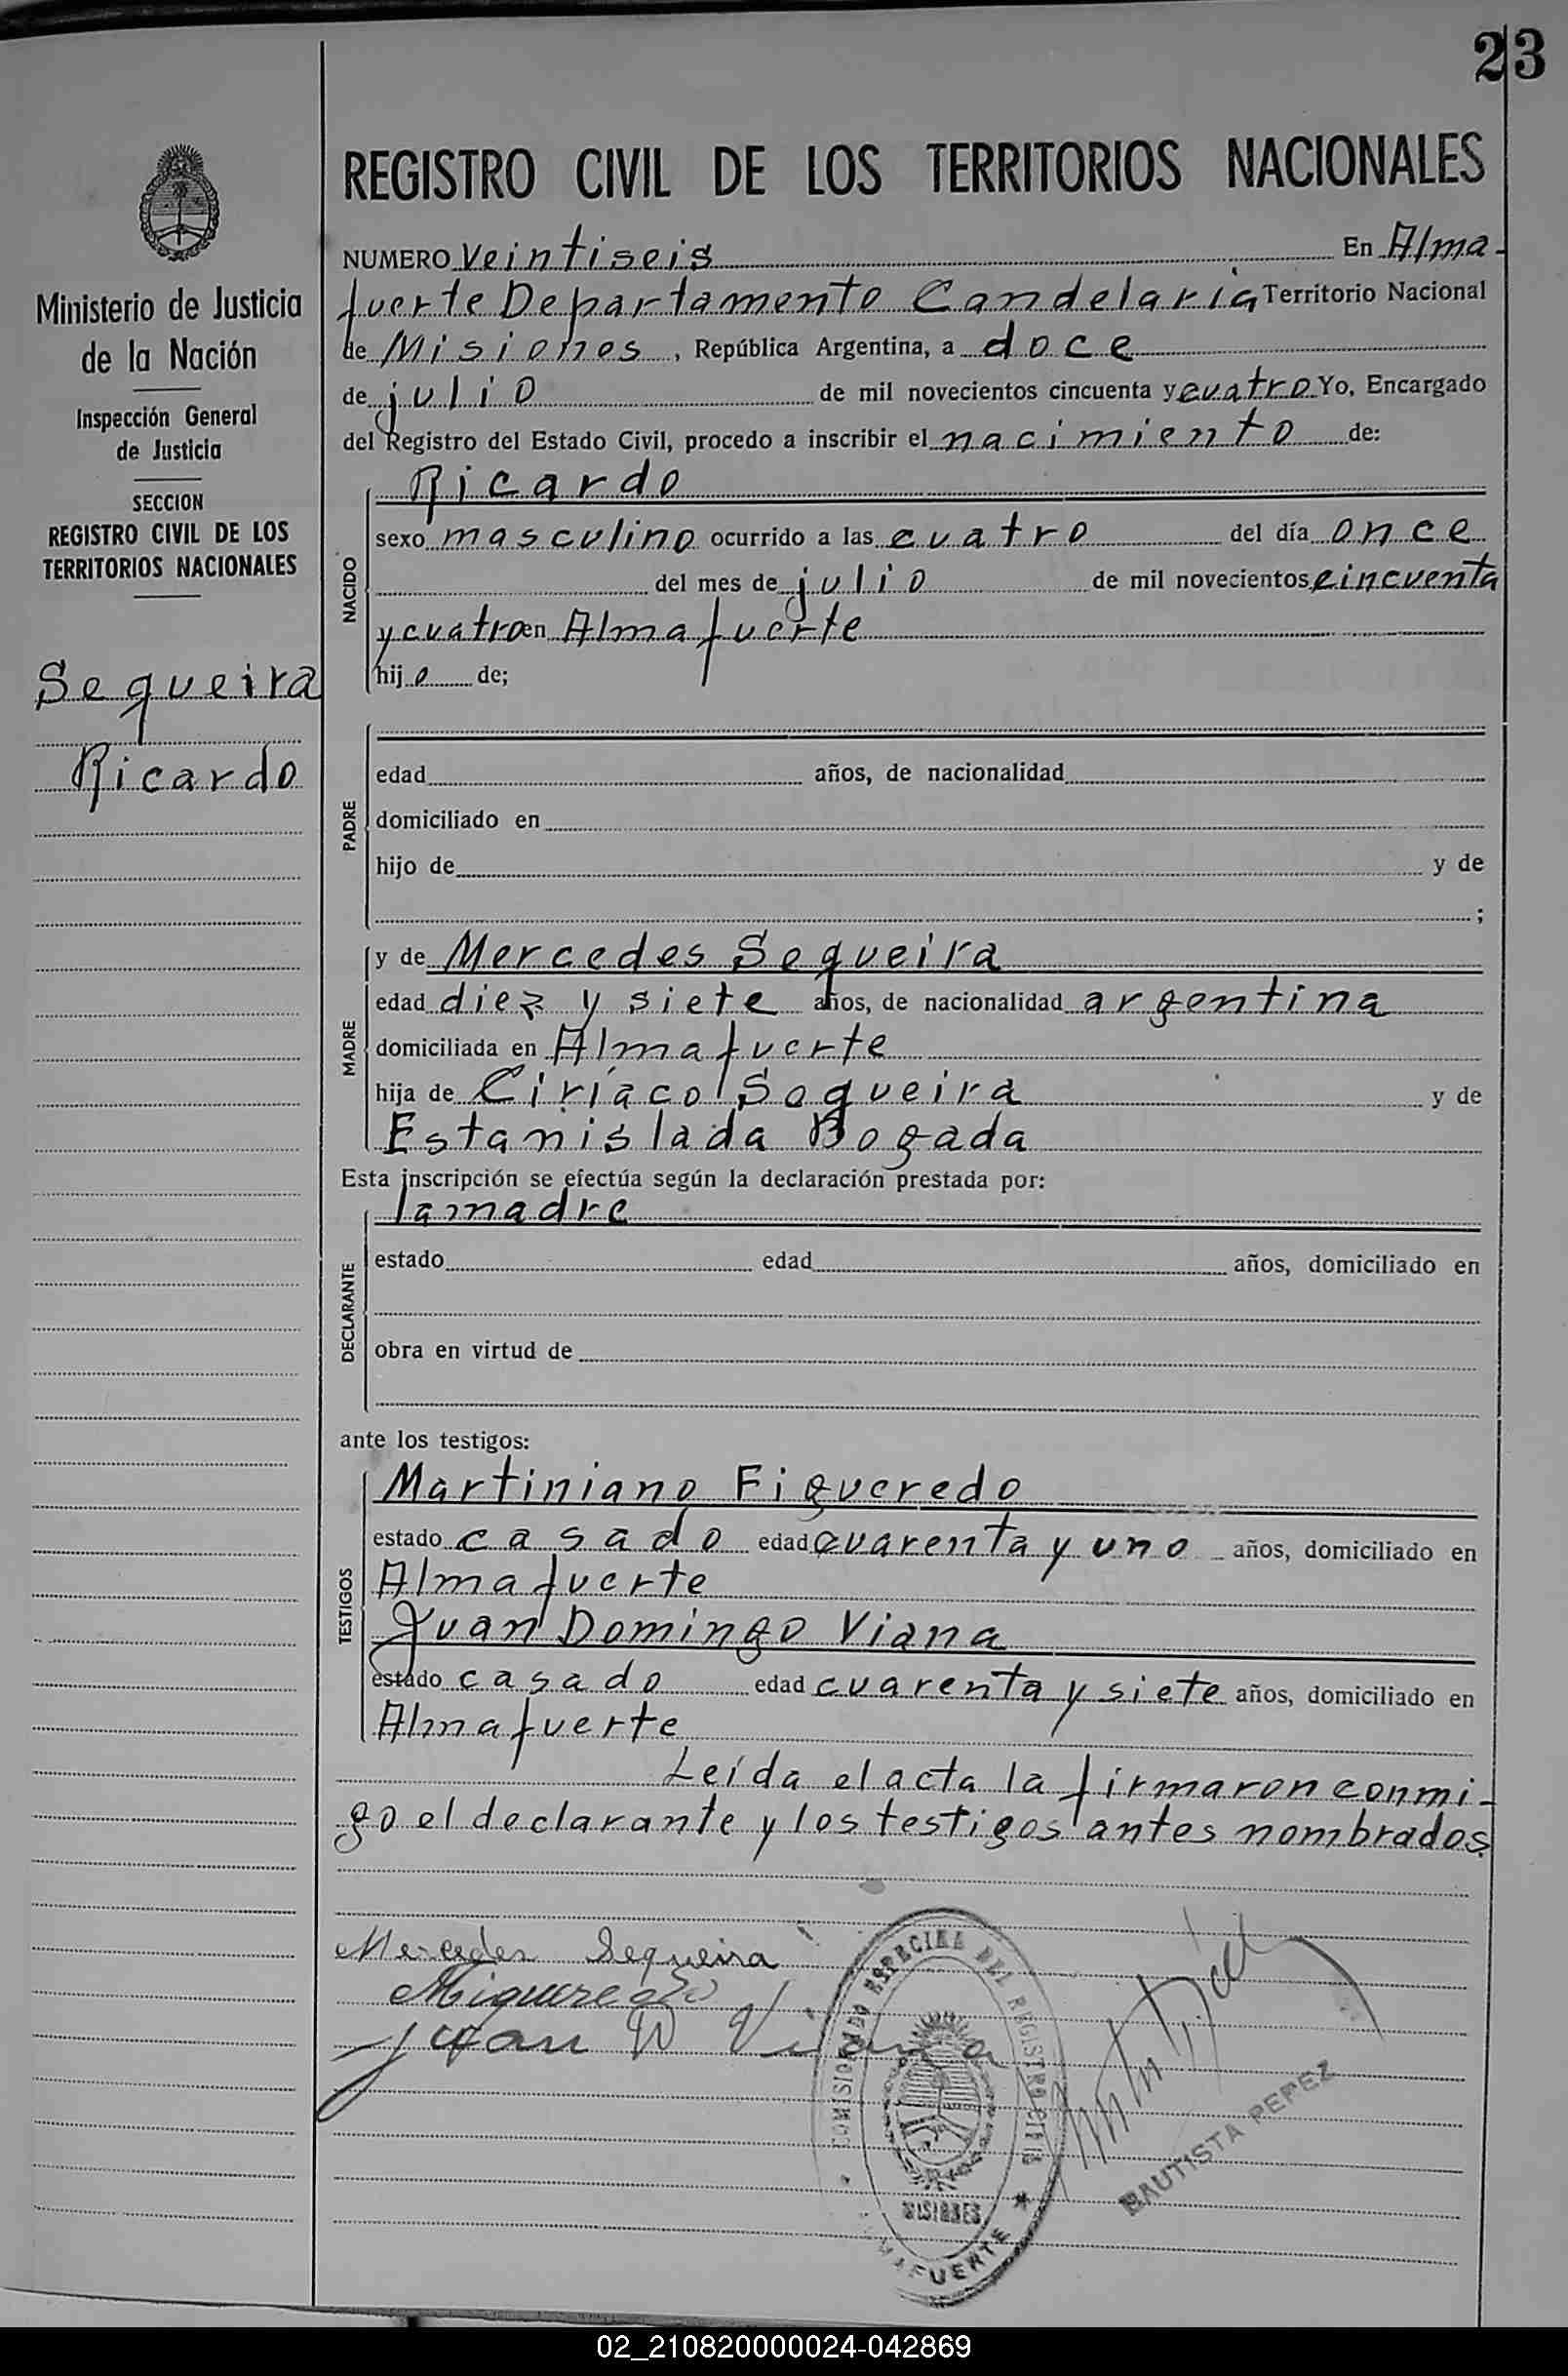 23
Ministerio de Justicia
de la Nación
Inspección General
de Justicia
SECCION
REGISTRO CIVIL DE LOS
TERRITORIOS NACIONALES
Sequeira
Ricardo
REGISTRO CIVIL DE LOS TERRITORIOS NACIONALES
NUMERO veintiseis En Alma-
fuerte Departamento Candelaria Territorio Nacional
de Misiones, República Argentina, a doce
de julio de mil novecientos cincuenta y cuatro Yo, Encargado
del Registro del Estado Civil, procedo a inscribir el nacimiento de:
NACIDO
Ricardo
sexo masculino ocurrido a las cuatro del día once
del mes de julio de mil novecientos cincuenta
y cuatro en Almafuerte
hijo de;
PADRE
edad años, de nacionalidad
domiciliado en
hijo de y de
;
MADRE
y de Mercedes Sequeira
edad diez y siete años, de nacionalidad argentina
domiciliada en Almafuerte
hija de Ciríaco Sequeira y de
Estanislada Bogada
Esta inscripción se efectúa según la declaración prestada por:
DECLARANTE
la madre
estado edad años, domiciliado en
obra en virtud de
ante los testigos:
TESTIGOS
Martiniano Figueredo
estado casado edad cuarenta y uno años, domiciliado en
Almafuerte
Juan Domingo Viana
estado casado edad cuarenta y siete años, domiciliado en
Almafuerte
Leída el acta la firmaron conmi-
go el declarante y los testigos antes nombrados
Mercedes Sequeira
Juan D Viana
COMISIONADO ESPECIAL DEL REGISTRO CIVIL
MISIONES
ALMAFUERTE
BAUTISTA PEREZ
02_210820000024-042869